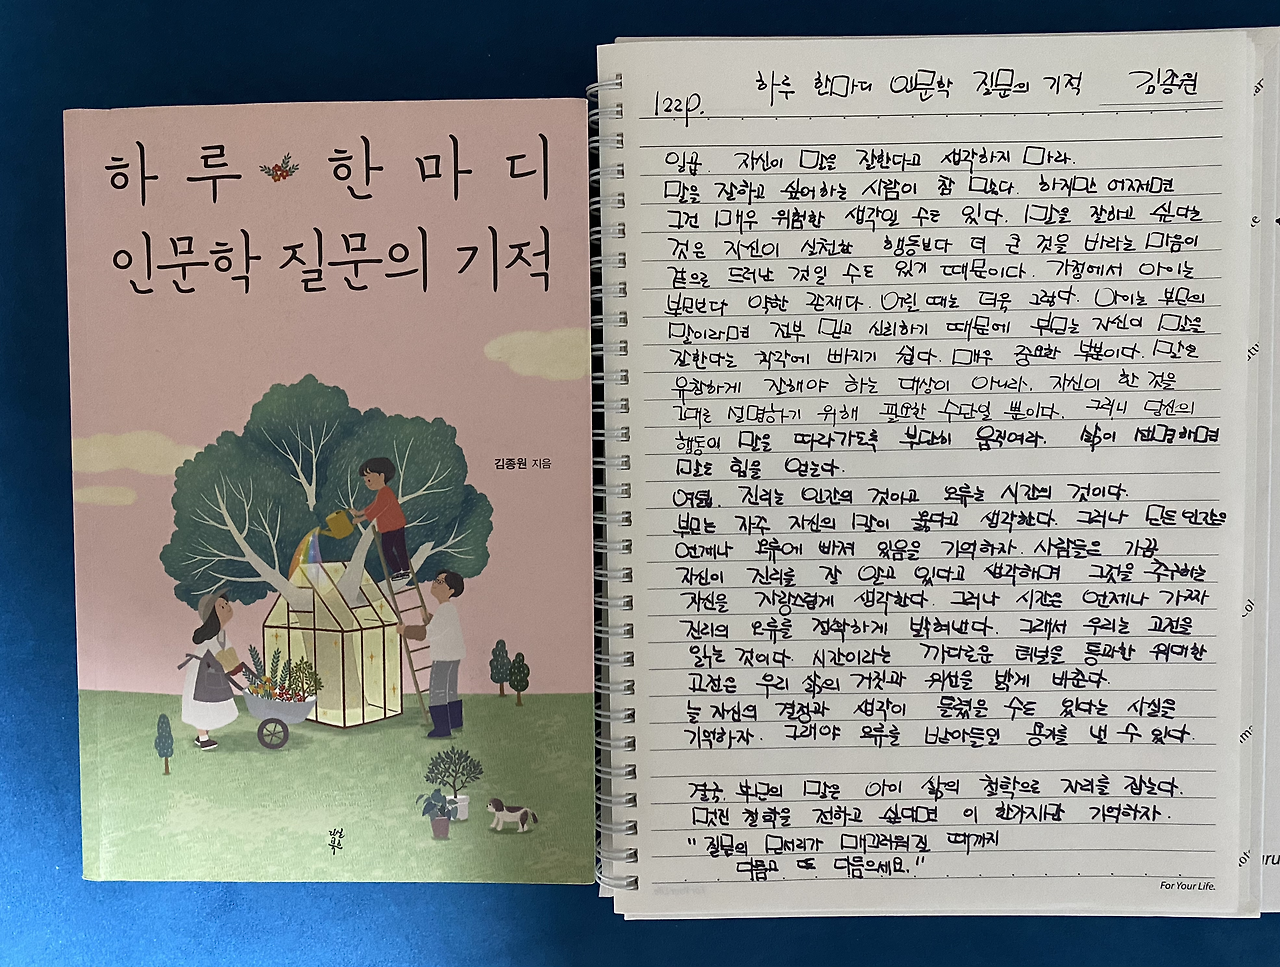 하루 한마디
인문학 질문의 기적
김종원 지음
다산
북스
122p. 하루 한마디 인문학 질문의 기적 김종원
일곱. 자신이 말을 잘한다고 생각하지 마라.
말을 잘하고 싶어하는 사람이 참 많다. 하지만 어쩌면
그건 매우 위험한 생각일 수도 있다. 말을 잘하고 싶다는
것은 자신이 실천한 행동보다 더 큰 것을 바라는 마음이
겉으로 드러난 것일 수도 있기 때문이다. 가정에서 아이는
부모보다 약한 존재다. 어릴 때는 더욱 그렇다. 아이는 부모의
말이라면 전부 믿고 신뢰하기 때문에 부모는 자신이 말을
잘한다는 착각에 빠지기 쉽다. 매우 중요한 부분이다. 말은
유창하게 잘해야 하는 대상이 아니라, 자신이 한 것을
그대로 설명하기 위해 필요한 수단일 뿐이다. 그러니 당신의
행동이 말을 따라가도록 부단히 움직여라. 삶이 생명하면
말도 힘을 얻는다.
여덟. 진리는 인간의 것아고 오류는 시간의 것이다.
부모는 자주 자신의 말이 옳다고 생각한다. 그러나 모든 인간은
언제나 오류에 빠져 있음을 기억하자. 사람들은 가끔
자신이 진리를 잘 알고 있다고 생각하며 그것을 추구하는
자신을 자랑스럽게 생각한다. 그러나 시간은 언제나 가짜
진리의 오류를 정확하게 밝혀낸다. 그래서 우리는 고전을
읽는 것이다. 시간이라는 까다로운 터널을 통과한 위대한
고전은 우리 삶의 거짓과 위선을 밝게 비춘다.
늘 자신의 결정과 생각이 틀렸을 수도 있다는 사실을
기억하자. 그래야 오류를 받아들일 용기를 낼 수 있다.
결국, 부모의 말은 아이 삶의 철학으로 자리를 잡는다.
멋진 철학을 전하고 싶다면 이 한가지만 기억하자.
"질문의 모서리가 매끄러워질 때까지
다듬고 또 다듬으세요."
For Your Life.